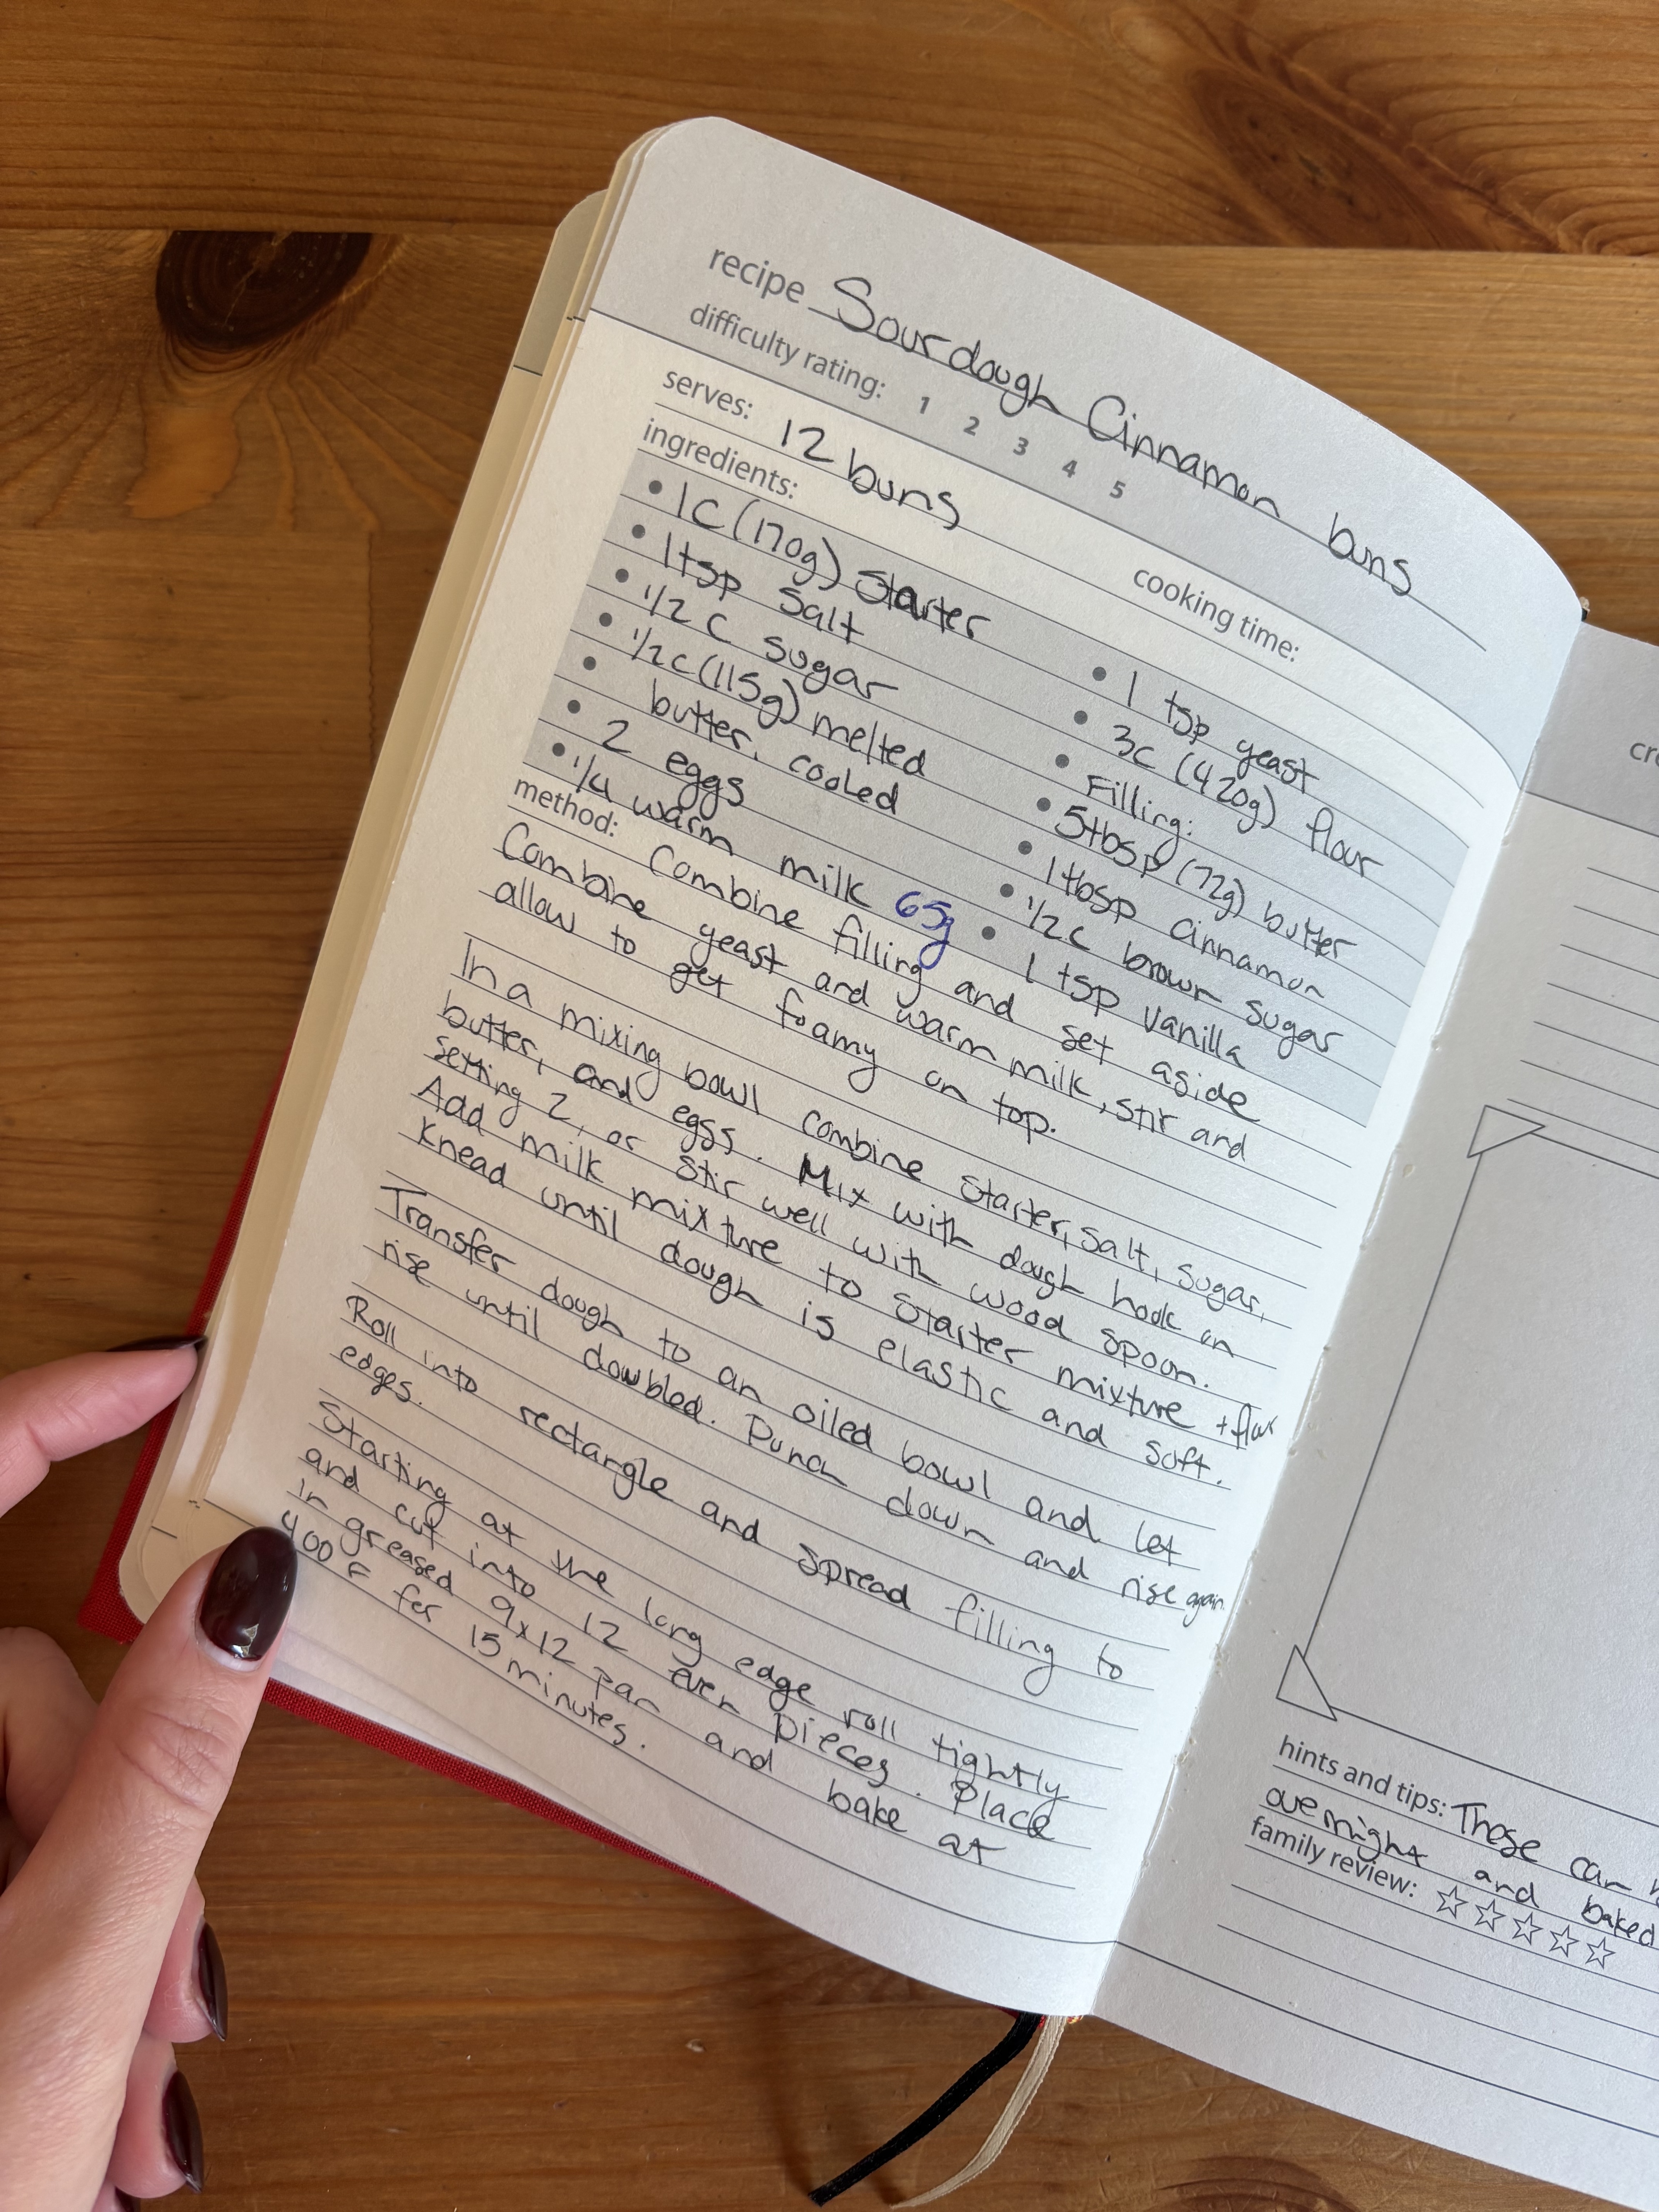 recipe Sourdough Cinnamon buns
difficulty rating: 1 2 3 4 5
serves: 12 buns
cooking time:
ingredients:
• 1c (170g) Starter
• 1tsp Salt
• 1/2 c sugar
• 1/2c (115g) melted
• butter, cooled
• 2 eggs
• 1/4 warm milk 65g
• 1 tsp yeast
• 3c (420g) flour
• Filling:
• 5tbsp (72g) butter
• 1tbsp cinnamon
• 1/2c brown sugar
• 1 tsp vanilla
method: Combine filling and set aside
Combine yeast and warm milk, stir and
allow to get foamy on top.
In a mixing bowl combine starter, salt, sugar,
butter, and eggs. Mix with dough hook on
setting 2, or stir well with wood spoon.
Add milk mixture to starter mixture + flour
Knead until dough is elastic and soft.
Transfer dough to an oiled bowl and let
rise until dowbled. Punch down and rise again.
Roll into rectangle and spread filling to
edges.
Starting at the long edge roll tightly
and cut into 12 even pieces. Place
in greased 9x12 pan and bake at
400 F for 15 minutes.
hints and tips: These can
overnight and baked
family review: ☆☆☆☆☆